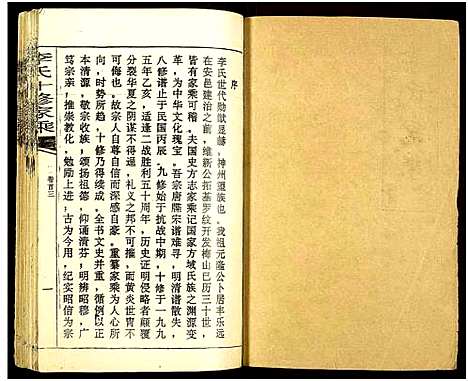 序
李氏世代勋猷显赫，神州望族也。我祖元隆公卜居丰乐远
在安邑建治之前，维新公拓基罗纹开发梅山已历三十世，
皆有家乘可稽。夫国史方志家乘记国家方域氏族之渊源变
革，为中华文化瑰宝。吾宗唐牒宋谱难寻，明清谱散失，
八修谱止于民国丙辰。九修始于抗战中期，十修于一九九
五年乙亥，适逢二战胜利五十周年，历史证明侵略者颠覆
分裂华夏之阴谋不得逞，礼义之邦不可摧，而黄炎世胄不
可侮也。故宗人自尊自信而深感自豪。重纂家乘为人心所
向，时势所趋，十修乃得续成，全书文史并重，循例以正
本清源，敬宗收族，颂扬祖德，仰诵清芬，明辨昭穆，广
笃宗亲，推崇教化，勉励上进，古为今用，纪实昭信为宗
李氏十修家乘
卷首三
一